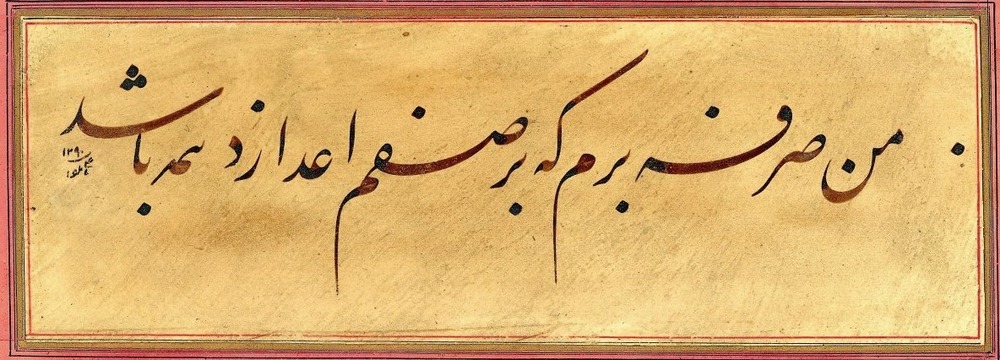 من صرفه برم که بر صفم اعدا زد باشد
۱۲۹۰